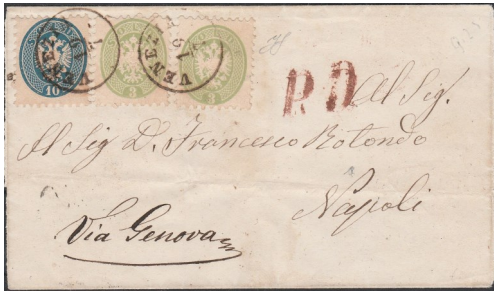 10 3 3
VENEZIA
P.D.
Al Sig.
Al Sig D. Francesco Rotondo
Napoli
Via Genova